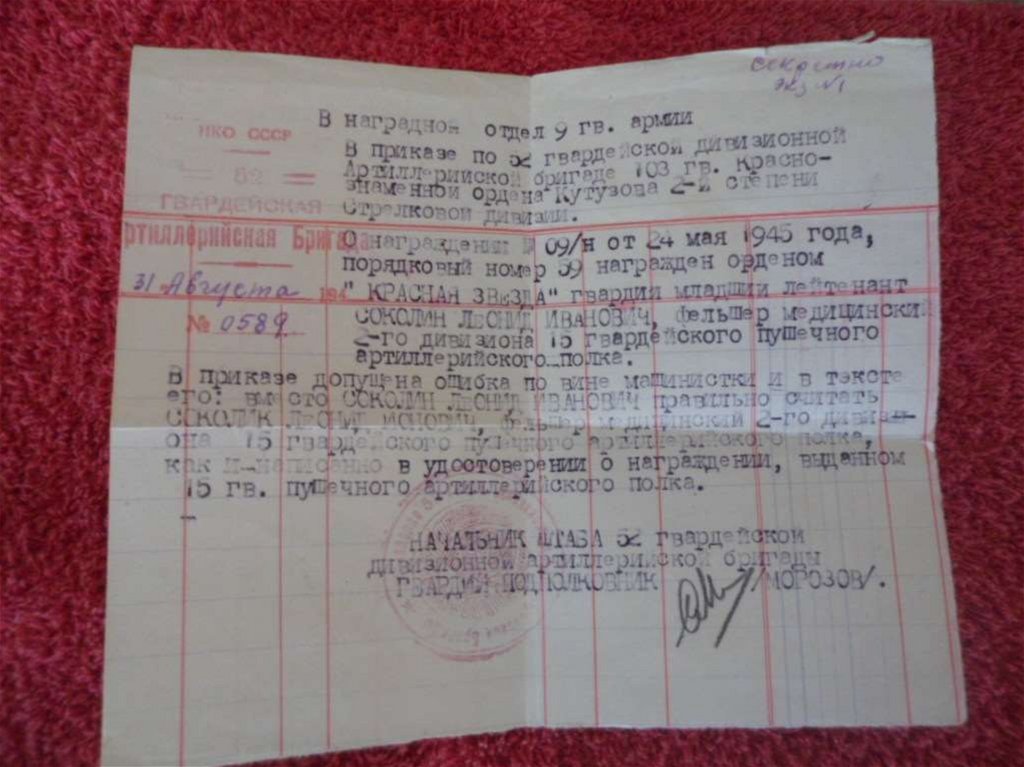 Секретно
Экз №1
В наградной отдел 9 гв. армии
НКО СССР
В приказе по 52 гвардейской дивизионной
Артиллерийской бригаде 103 гв. Красно-
52
знаменной ордена Кутузова 2-й степени
ГВАРДЕЙСКАЯ
Стрелковой дивизии.
Артиллерийская Бригада
О награждении № 09/н от 24 мая 1945 года,
порядковый номер 59 награжден орденом
31 Августа 194
" КРАСНАЯ ЗВЕЗДА" гвардия младший лейтенант
№ 0589
СОКОЛИН ЛЕОНИД ИВАНОВИЧ, фельшер медицинский
2-го дивизиона 15 гвардейского пушечного
артиллерийского полка.
В приказе допущена ошибка по вине машинистки и в тэксте
его: вместо СОКОЛИН ЛЕОНИД ИВАНОВИЧ правильно считать
СОКОЛИК ЛЕОНИД ИОНОВИЧ, фельшер медицинский 2-го дивизи-
она 15 гвардейского пушечного артиллерийского полка,
как и написанно в удостоверении о награждении, выданном
15 гв. пушечного артиллерийского полка.
НАЧАЛЬНИК ШТАБА 52 гвардейской
дивизионной артиллерийской бригады
ГВАРДИИ ПОДПОЛКОВНИК /МОРОЗОВ/.